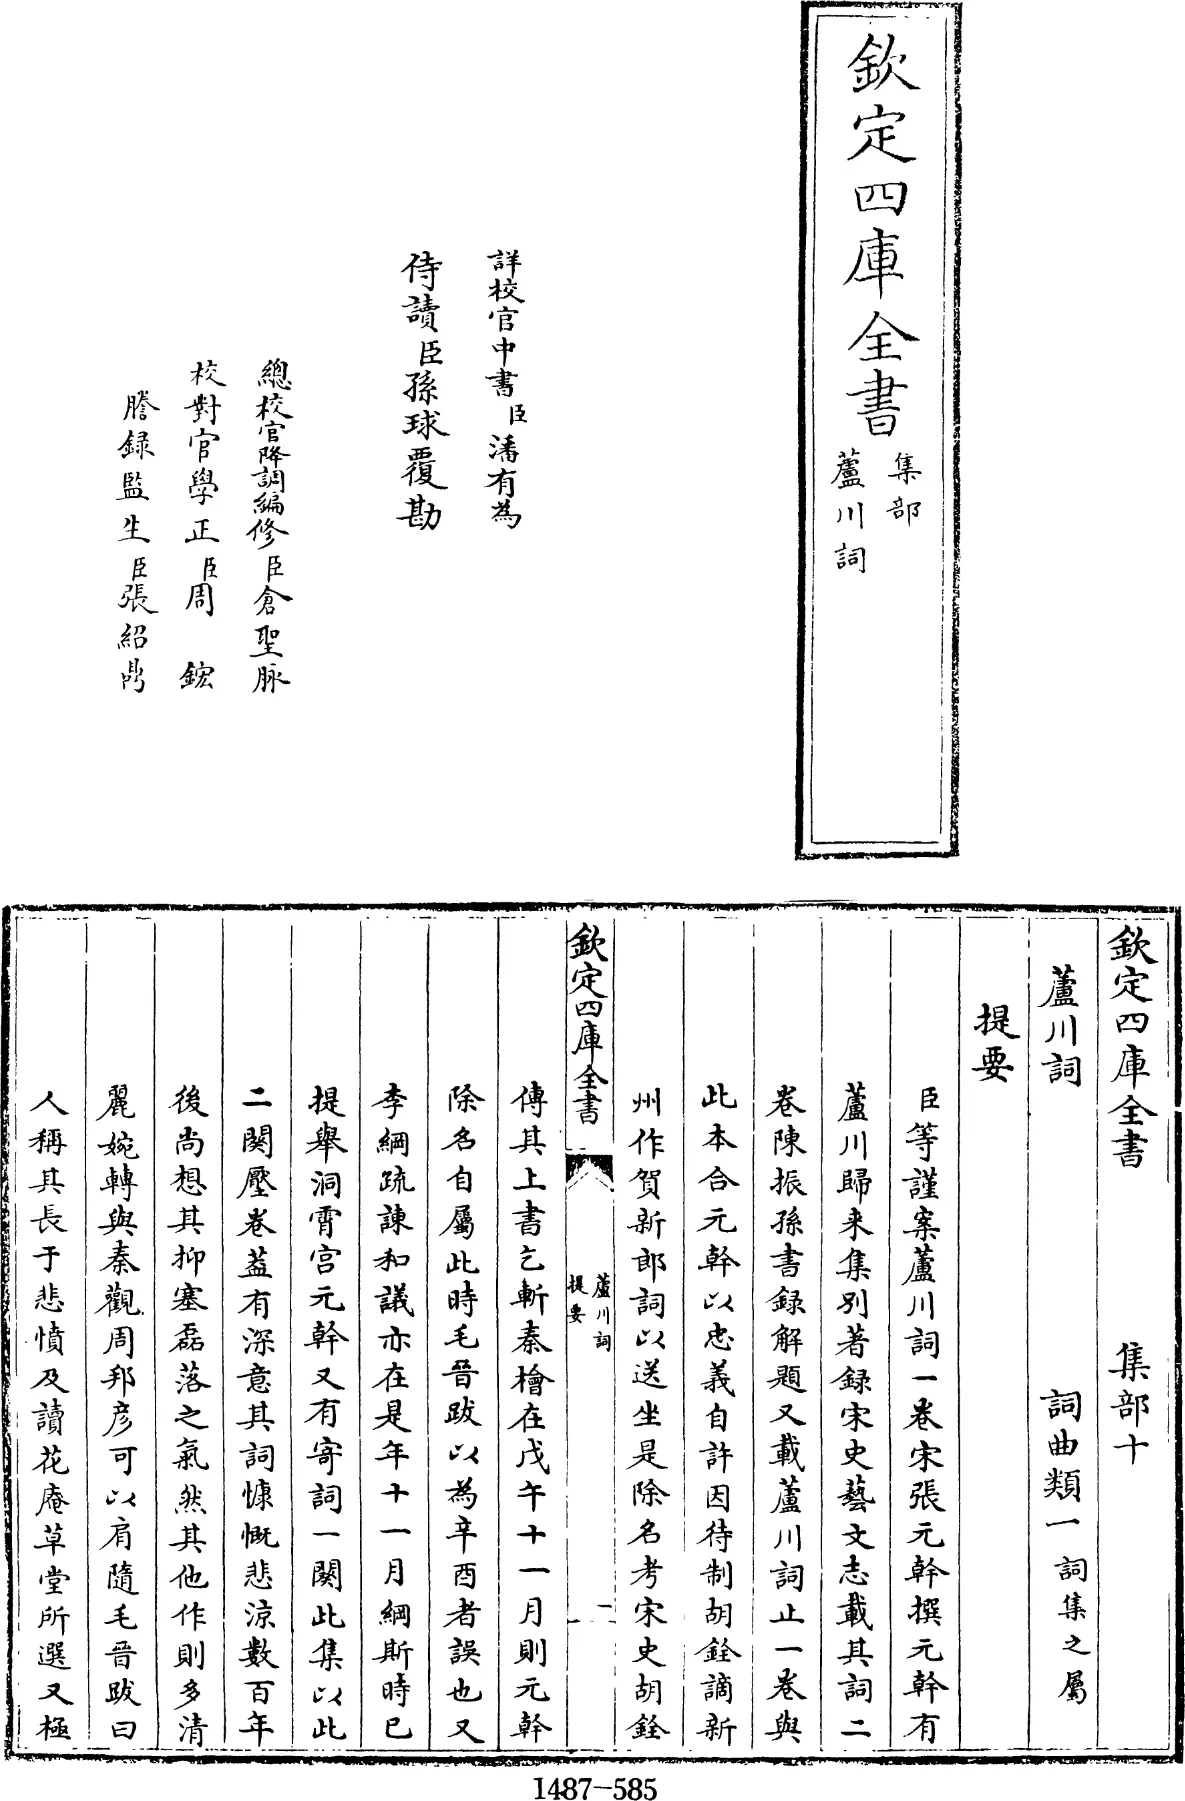 欽定四庫全書
集部
蘆川詞
詳校官中書臣潘有為
侍讀臣孫球覆勘
總校官降調編修臣倉聖脉
校對官學正臣周鋐
謄録監生臣張紹嵒
欽定四庫全書 集部十
蘆川詞 詞曲類一 詞集之屬
提要
臣等謹案蘆川詞一卷宋張元幹撰元幹有
蘆川歸来集別著録宋史藝文志載其詞二
卷陳振孫書録解題又載蘆川詞止一卷與
此本合元幹以忠義自許因待制胡銓謫新
州作賀新郎詞以送坐是除名考宋史胡銓
欽定四庫全書
蘆川詞
提要
一
傳其上書乞斬秦檜在戊午十一月則元幹
除名自屬此時毛晉跋以為辛酉者誤也又
李綱疏諫和議亦在是年十一月綱斯時已
提舉洞霄宫元幹又有寄詞一闋此集以此
二闋壓卷葢有深意其詞慷慨悲涼數百年
後尚想其抑塞磊落之氣然其他作則多清
麗婉轉與秦觀周邦彦可以肩隨毛晉跋曰
人稱其長于悲憤及讀花庵草堂所選又極
1487-585